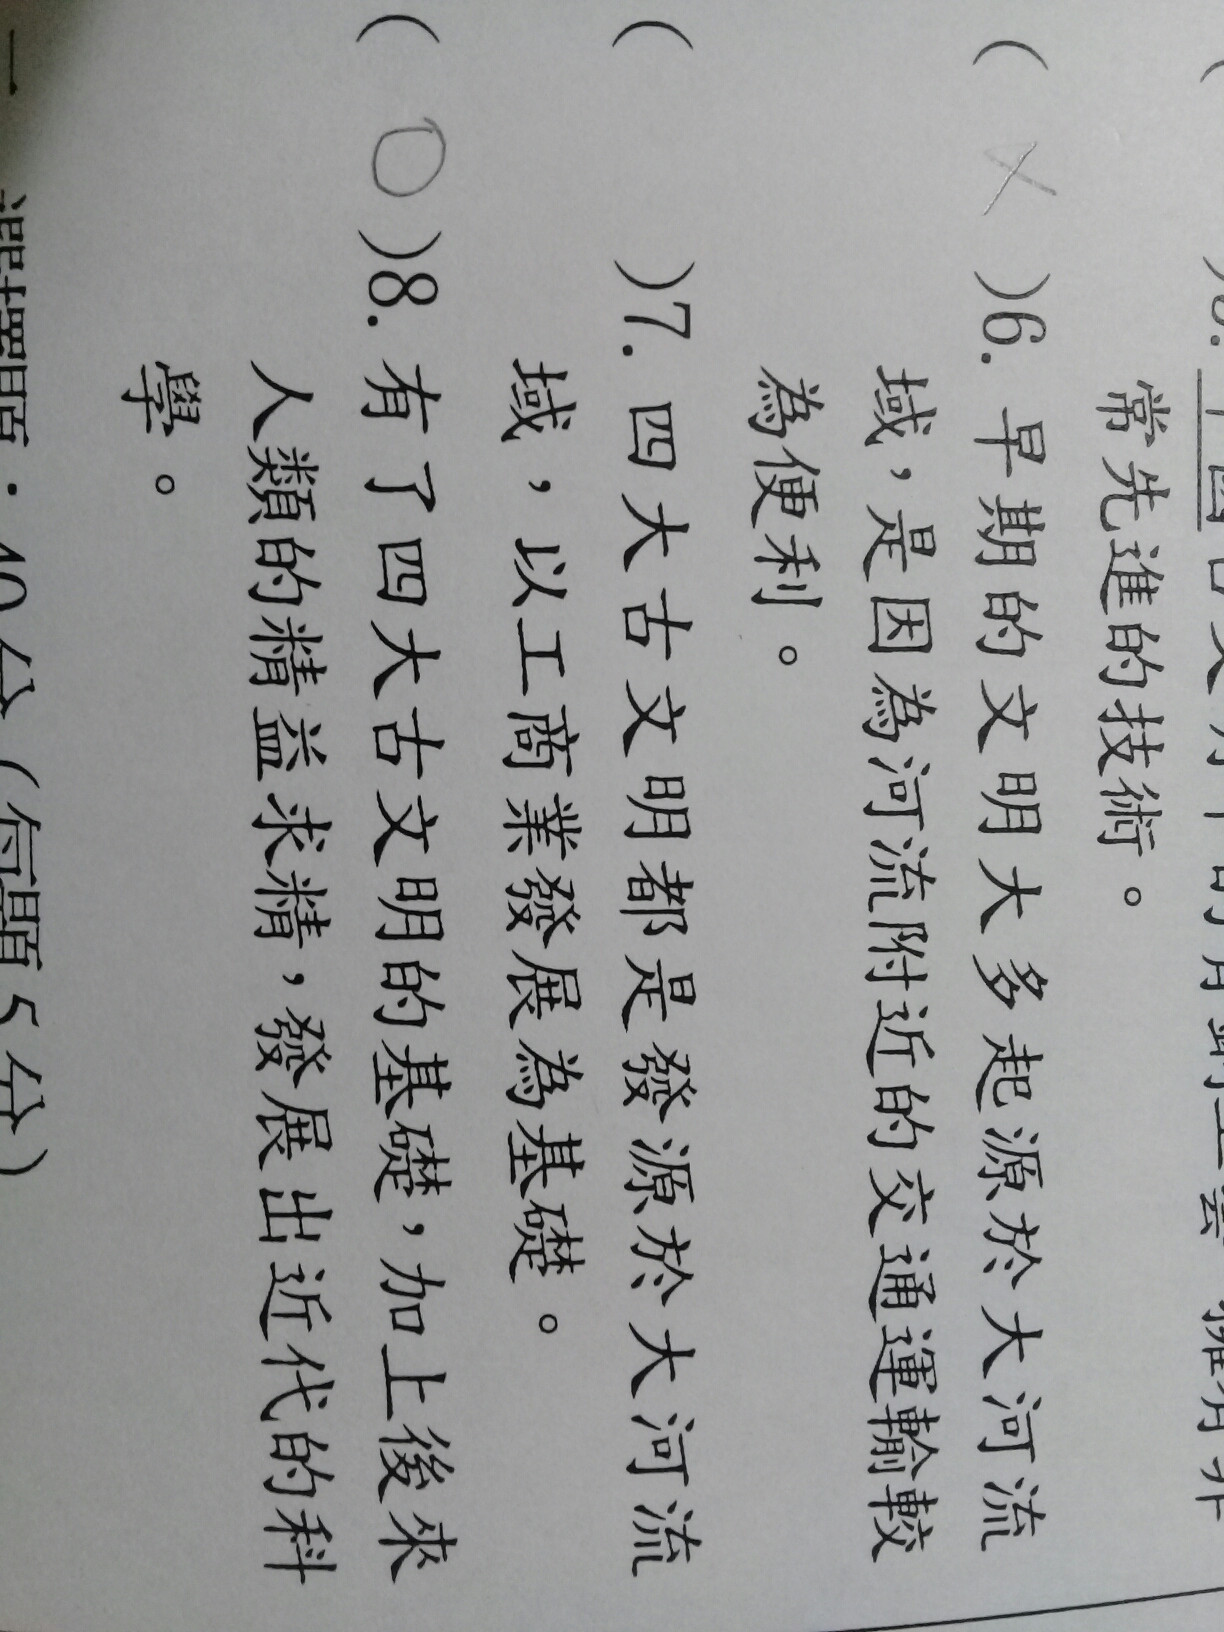 常先進的技術。
( X )6. 早期的文明大多起源於大河流
域，是因為河流附近的交通運輸較
為便利。
( )7. 四大古文明都是發源於大河流
域，以工商業發展為基礎。
( O )8. 有了四大古文明的基礎，加上後來
人類的精益求精，發展出近代的科
學。
選擇題：40分（每題5分）